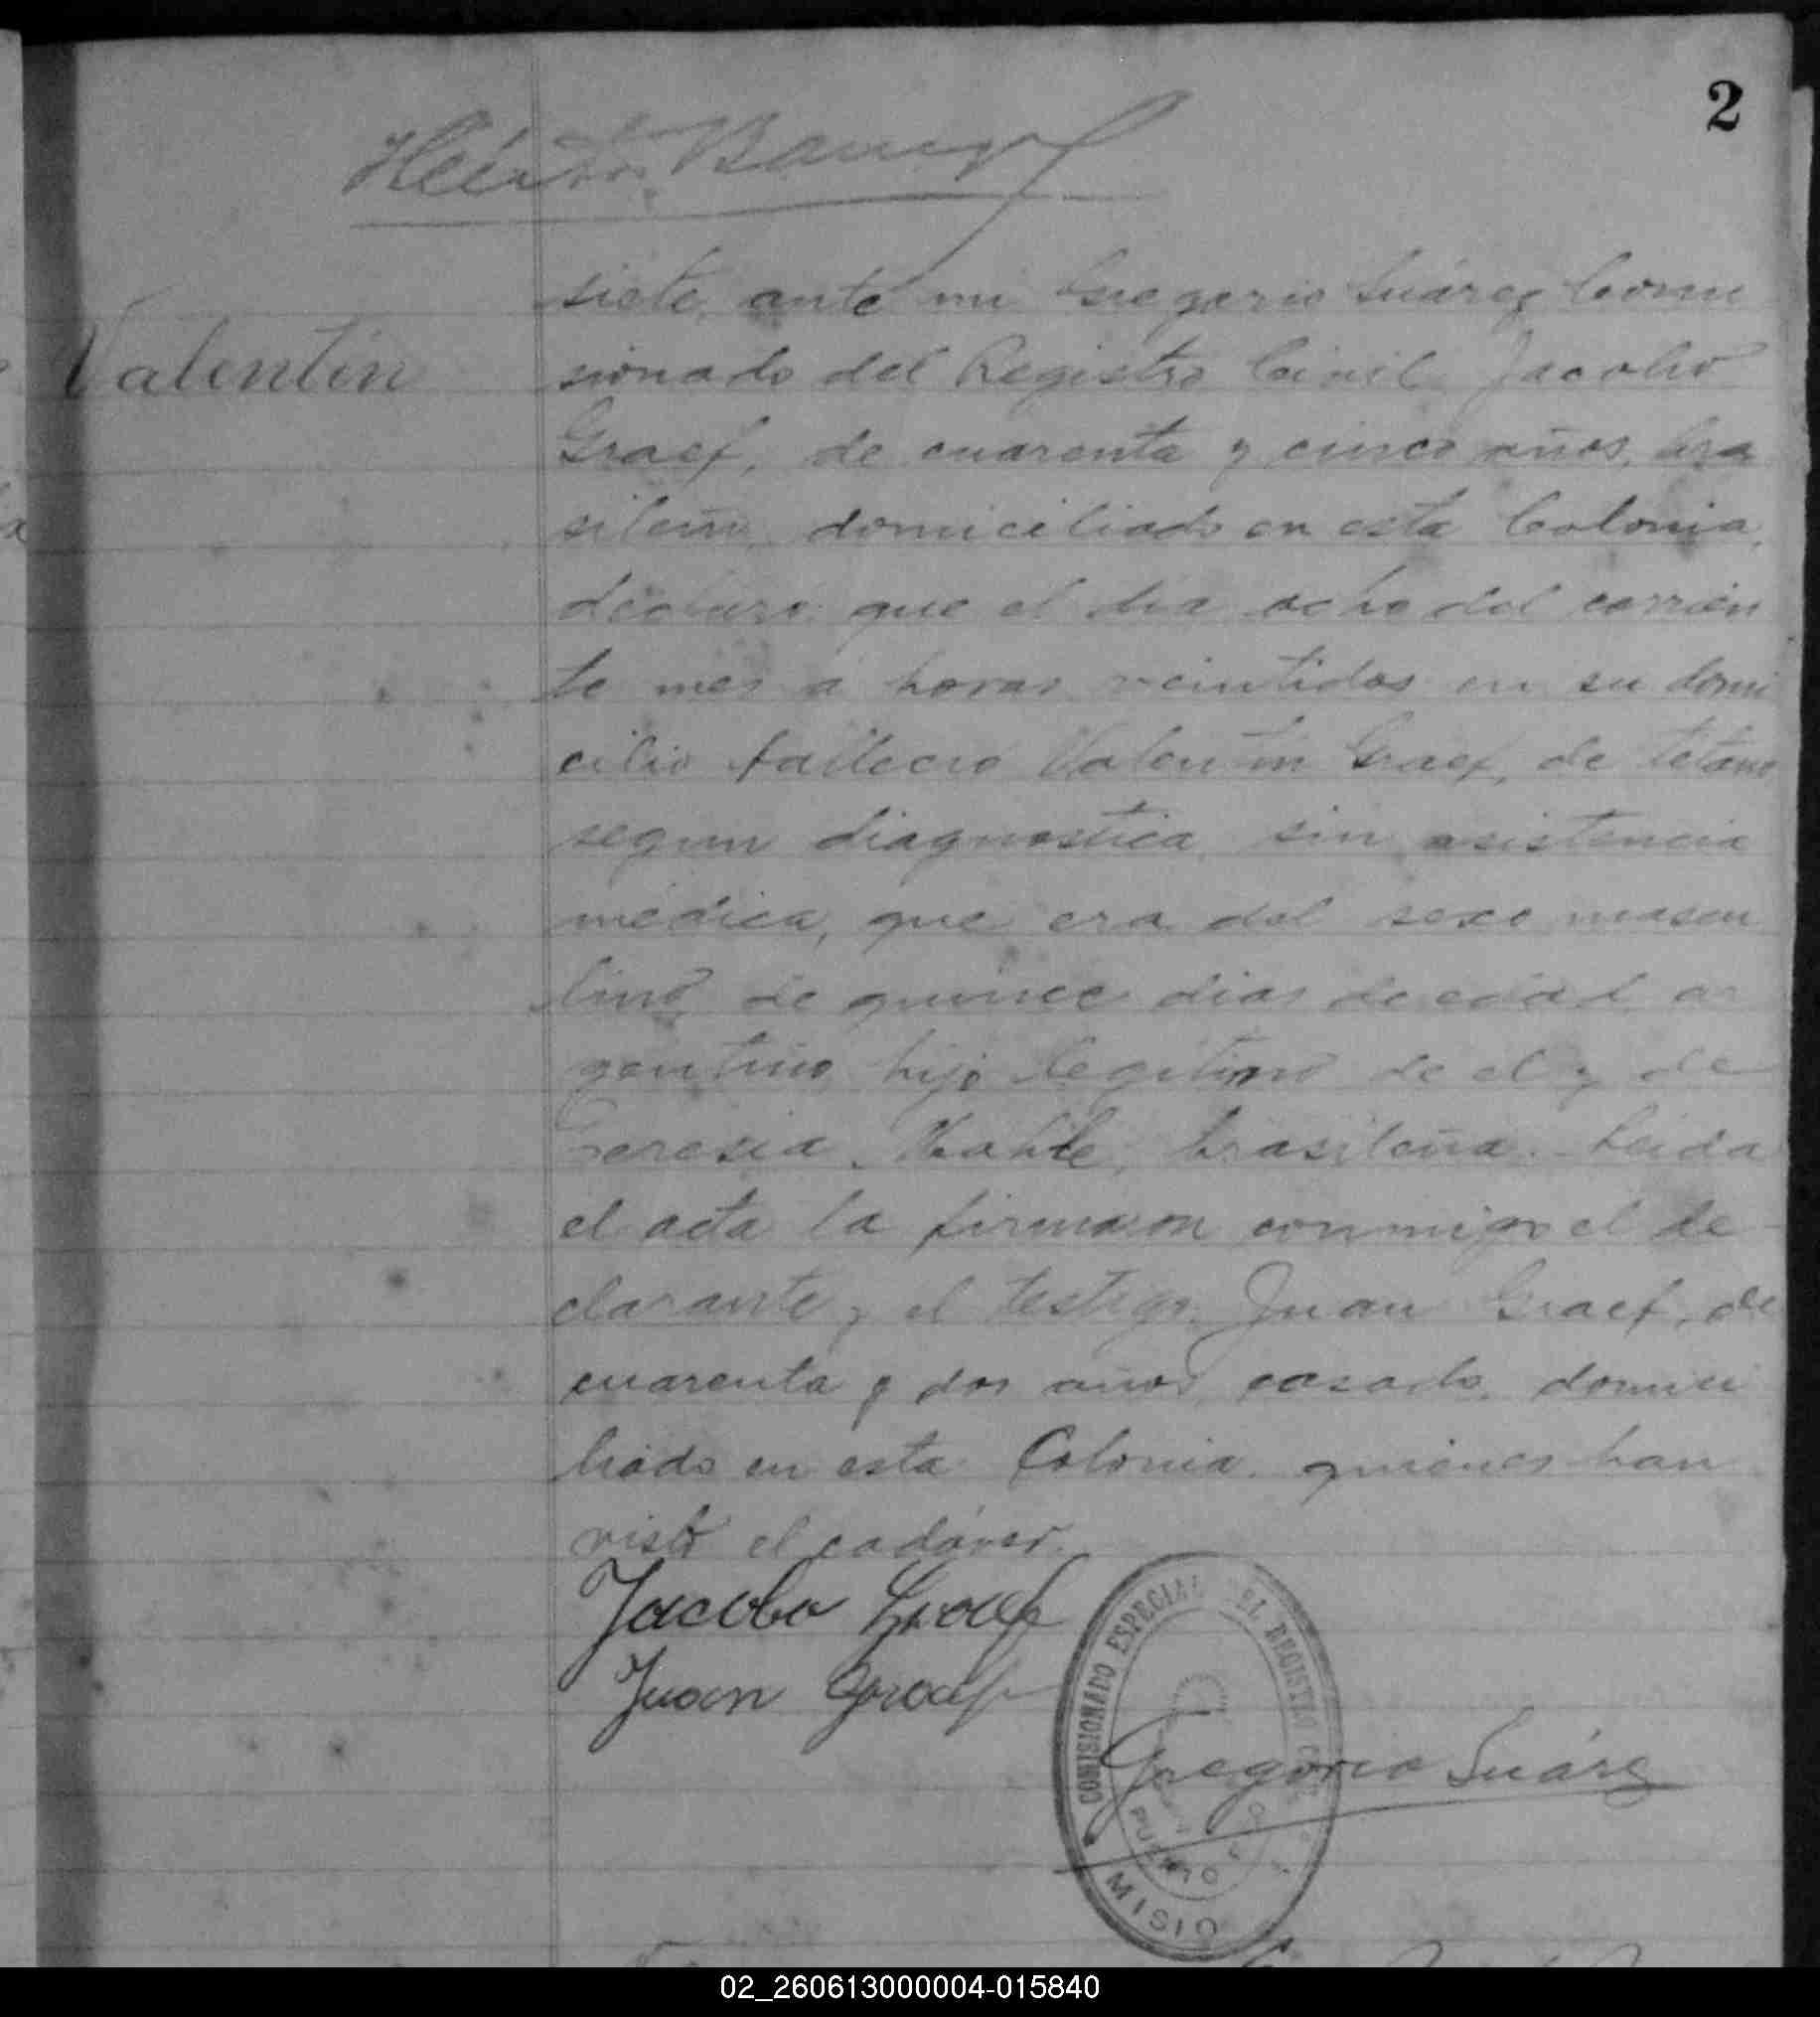 2
siete, ante mi Gregorio Suárez Comi
Valentin
sionado del Registro Civil Jacobo
Graef, de cuarenta y cinco años, bra
sileño, domiciliado en esta Colonia,
declaró: que el dia ocho del corrien
te mes a horas veintidos en su domi
cilio falleció Valentin Graef, de tétano
segun diagnostica, sin asistencia
médica, que era del sexo mascu
lino, de quince dias de edad, ar
gentino, hijo legitimo de el y de
Teresia brasileña. Leida
el acta la firmaron conmigo el de
clarante y el testigo Juan Graef, de
cuarenta y dos años, casado, domici
liado en esta Colonia, quienes han
visto el cadáver.
Jacobo Graef
Juan Graef
COMISIONADO ESPECIAL DEL REGISTRO CIVIL
Gregorio Suárez
PUERTO
MISIO
02_260613000004-015840